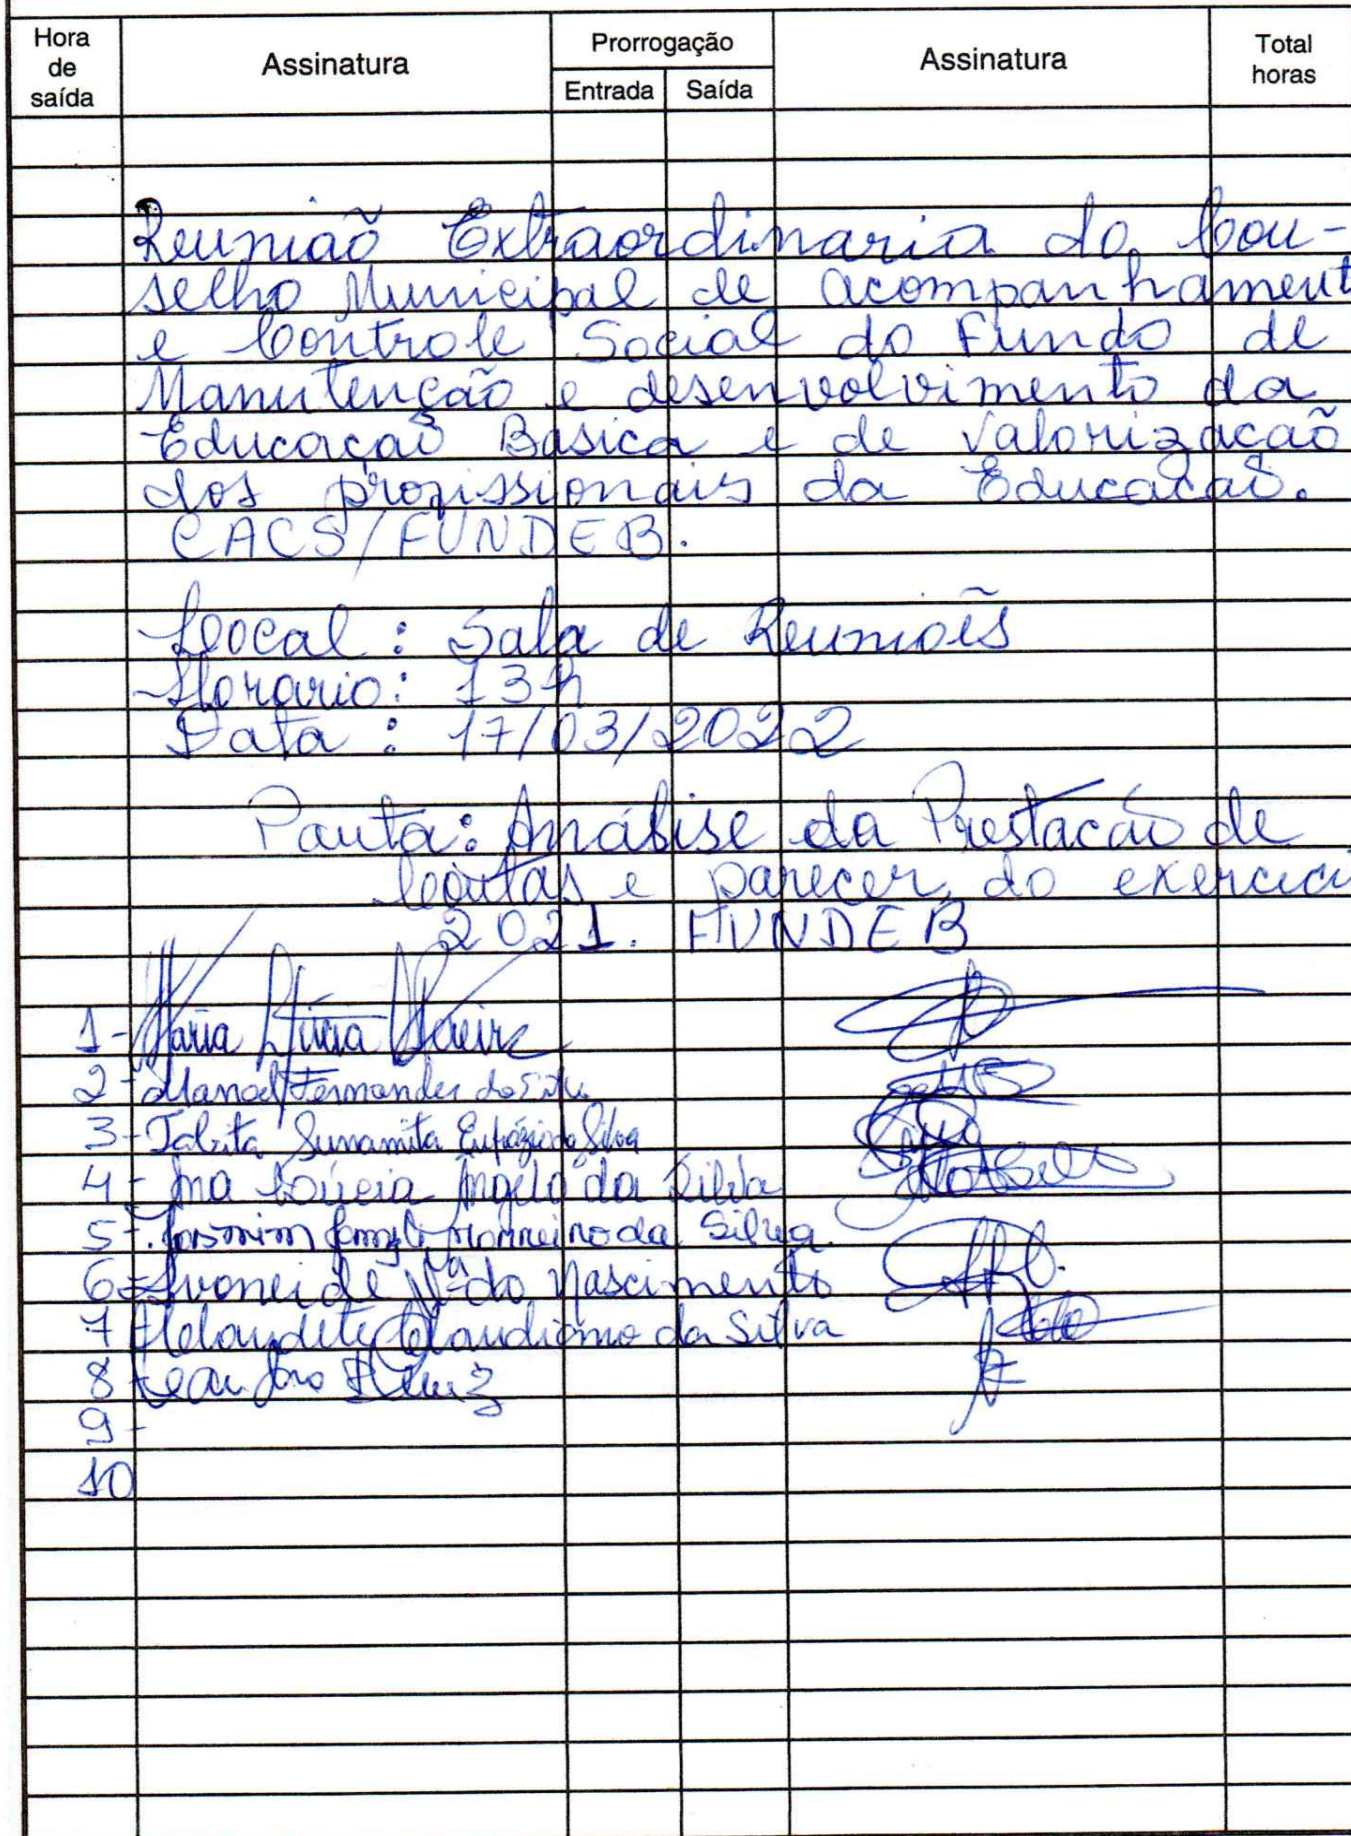 Hora de saída
Assinatura
Prorrogação
Entrada
Saída
Assinatura
Total horas
Reunião Extraordinaria do Con-
selho Municipal de acompanhament
e Controle Social do Fundo de
Manutenção e desenvolvimento da
Educação Basica e de Valorização
dos profissionais da Educacaõ.
CACS/FUNDEB.
Local: Sala de Reuniões
Horario: 13h
Data: 17/03/2022
Pauta: Análise da Prestacão de
Contas e parecer do exercici
2021. FUNDEB
1- Maria
2- Manoel Fernandes da Silva
3- Talita Sunamita Eufrázio da Silva
4- Ana Lúcia Angelo da Silva
5- Monteiro da Silva
6- Ivoneide Mª do Nascimento
7 Claudiomo da Silva
8 Leandro
9-
10